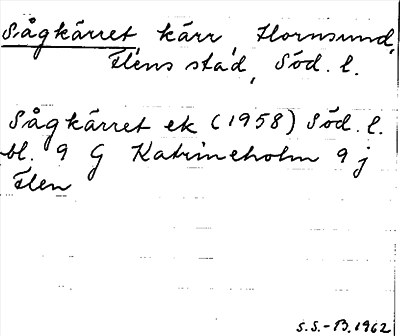 Sågkärret kärr, Hornsund,
Flens stad, Söd. l.
Sågkärret ek (1958) Söd. l.
bl. 9 G Katrineholm 9 j
Flen
S.S.-B. 1962